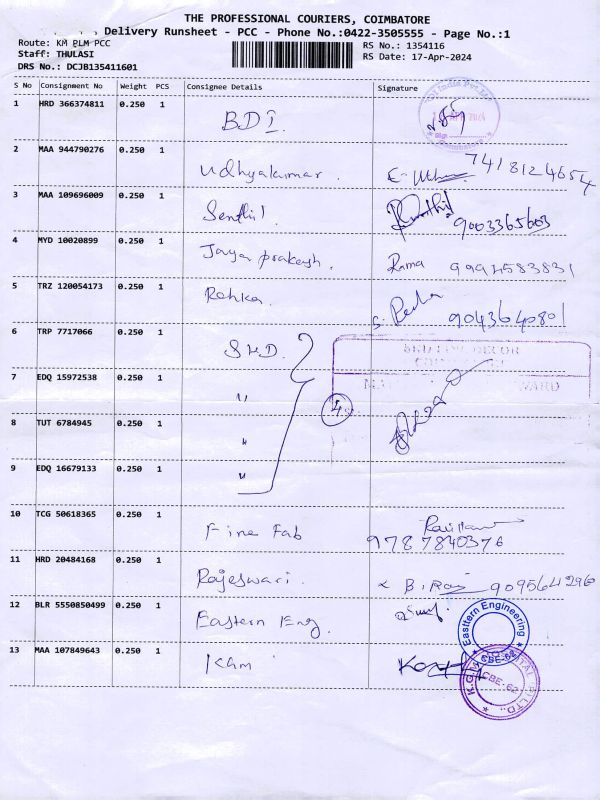 THE PROFESSIONAL COURIERS, COIMBATORE
Delivery Runsheet - PCC - Phone No.:0422-3505555 - Page No.:1
Route: KM PLM PCC
RS No.: 1354116
Staff: THULASI
RS Date: 17-Apr-2024
DRS No.: DCJB135411601
S No Consignment No Weight PCS Consignee Details Signature
1 HRD 366374811 0.250 1 BDI
2 MAA 944790276 0.250 1 Udhyakumar. 7418124654
3 MAA 109696009 0.250 1 Senthil 9003365603
4 MYD 10020899 0.250 1 Jaya prakash. Rama 9994583831
5 TRZ 120054173 0.250 1 9043640801
6 TRP 7717066 0.250 1 SHD.
7 EDQ 15972538 0.250 1 "
8 TUT 6784945 0.250 1 "
9 EDQ 16679133 0.250 1 "
10 TCG 50618365 0.250 1 Fine Fab
9787840376
11 HRD 20484168 0.250 1 Rajeswari. B. Raj 909564296
12 BLR 5550850499 0.250 1 Eastern Eng.
Eastern Engineering
CBE-62
13 MAA 107849643 0.250 1 KGM
CBE-62